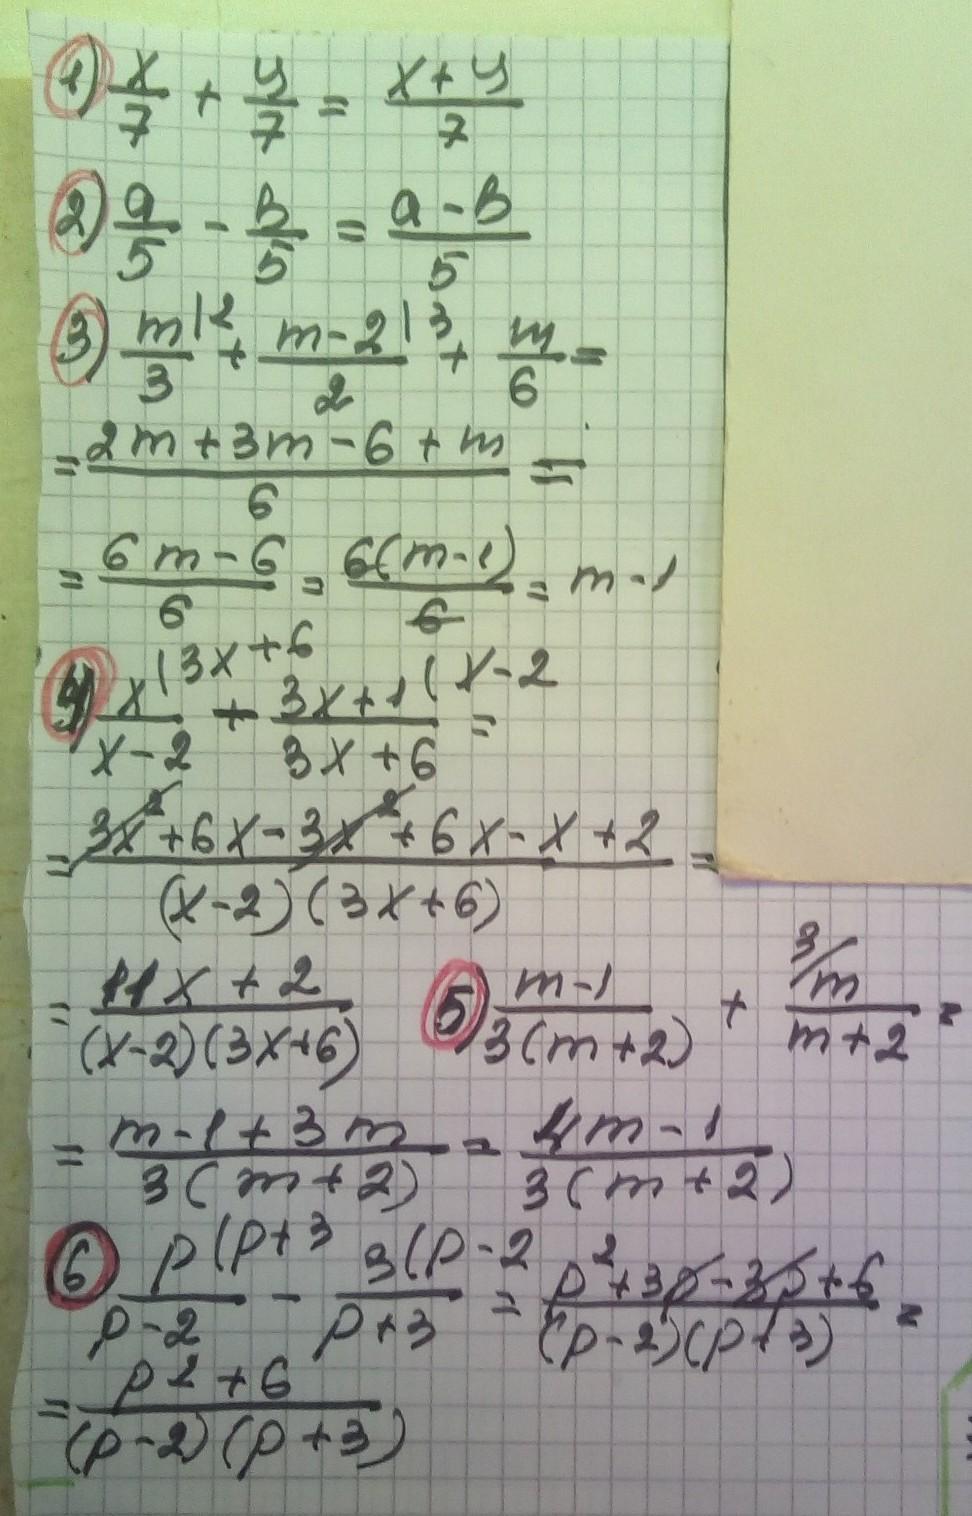 1) x/7 + y/7 = (x+y)/7
2) a/5 - в/5 = (a-в)/5
3) m/3 |2 + (m-2)/2 |3 + m/6 =
= (2m+3m-6+m)/6 =
= (6m-6)/6 = 6(m-1)/6 = m-1
4) x/(x-2) |3x+6 + (3x+1)/(3x+6) (x-2 =
= (3x²+6x-3x²+6x-x+2)/((x-2)(3x+6)) =
= (11x+2)/((x-2)(3x+6))
5) (m-1)/(3(m+2)) + 3/ m/(m+2) =
= (m-1+3m)/(3(m+2)) = (4m-1)/(3(m+2))
6) p/(p-2) (p+3 - 3/(p+3) (p-2 = (p²+3p-3p+6)/((p-2)(p+3)) =
= (p²+6)/((p-2)(p+3))